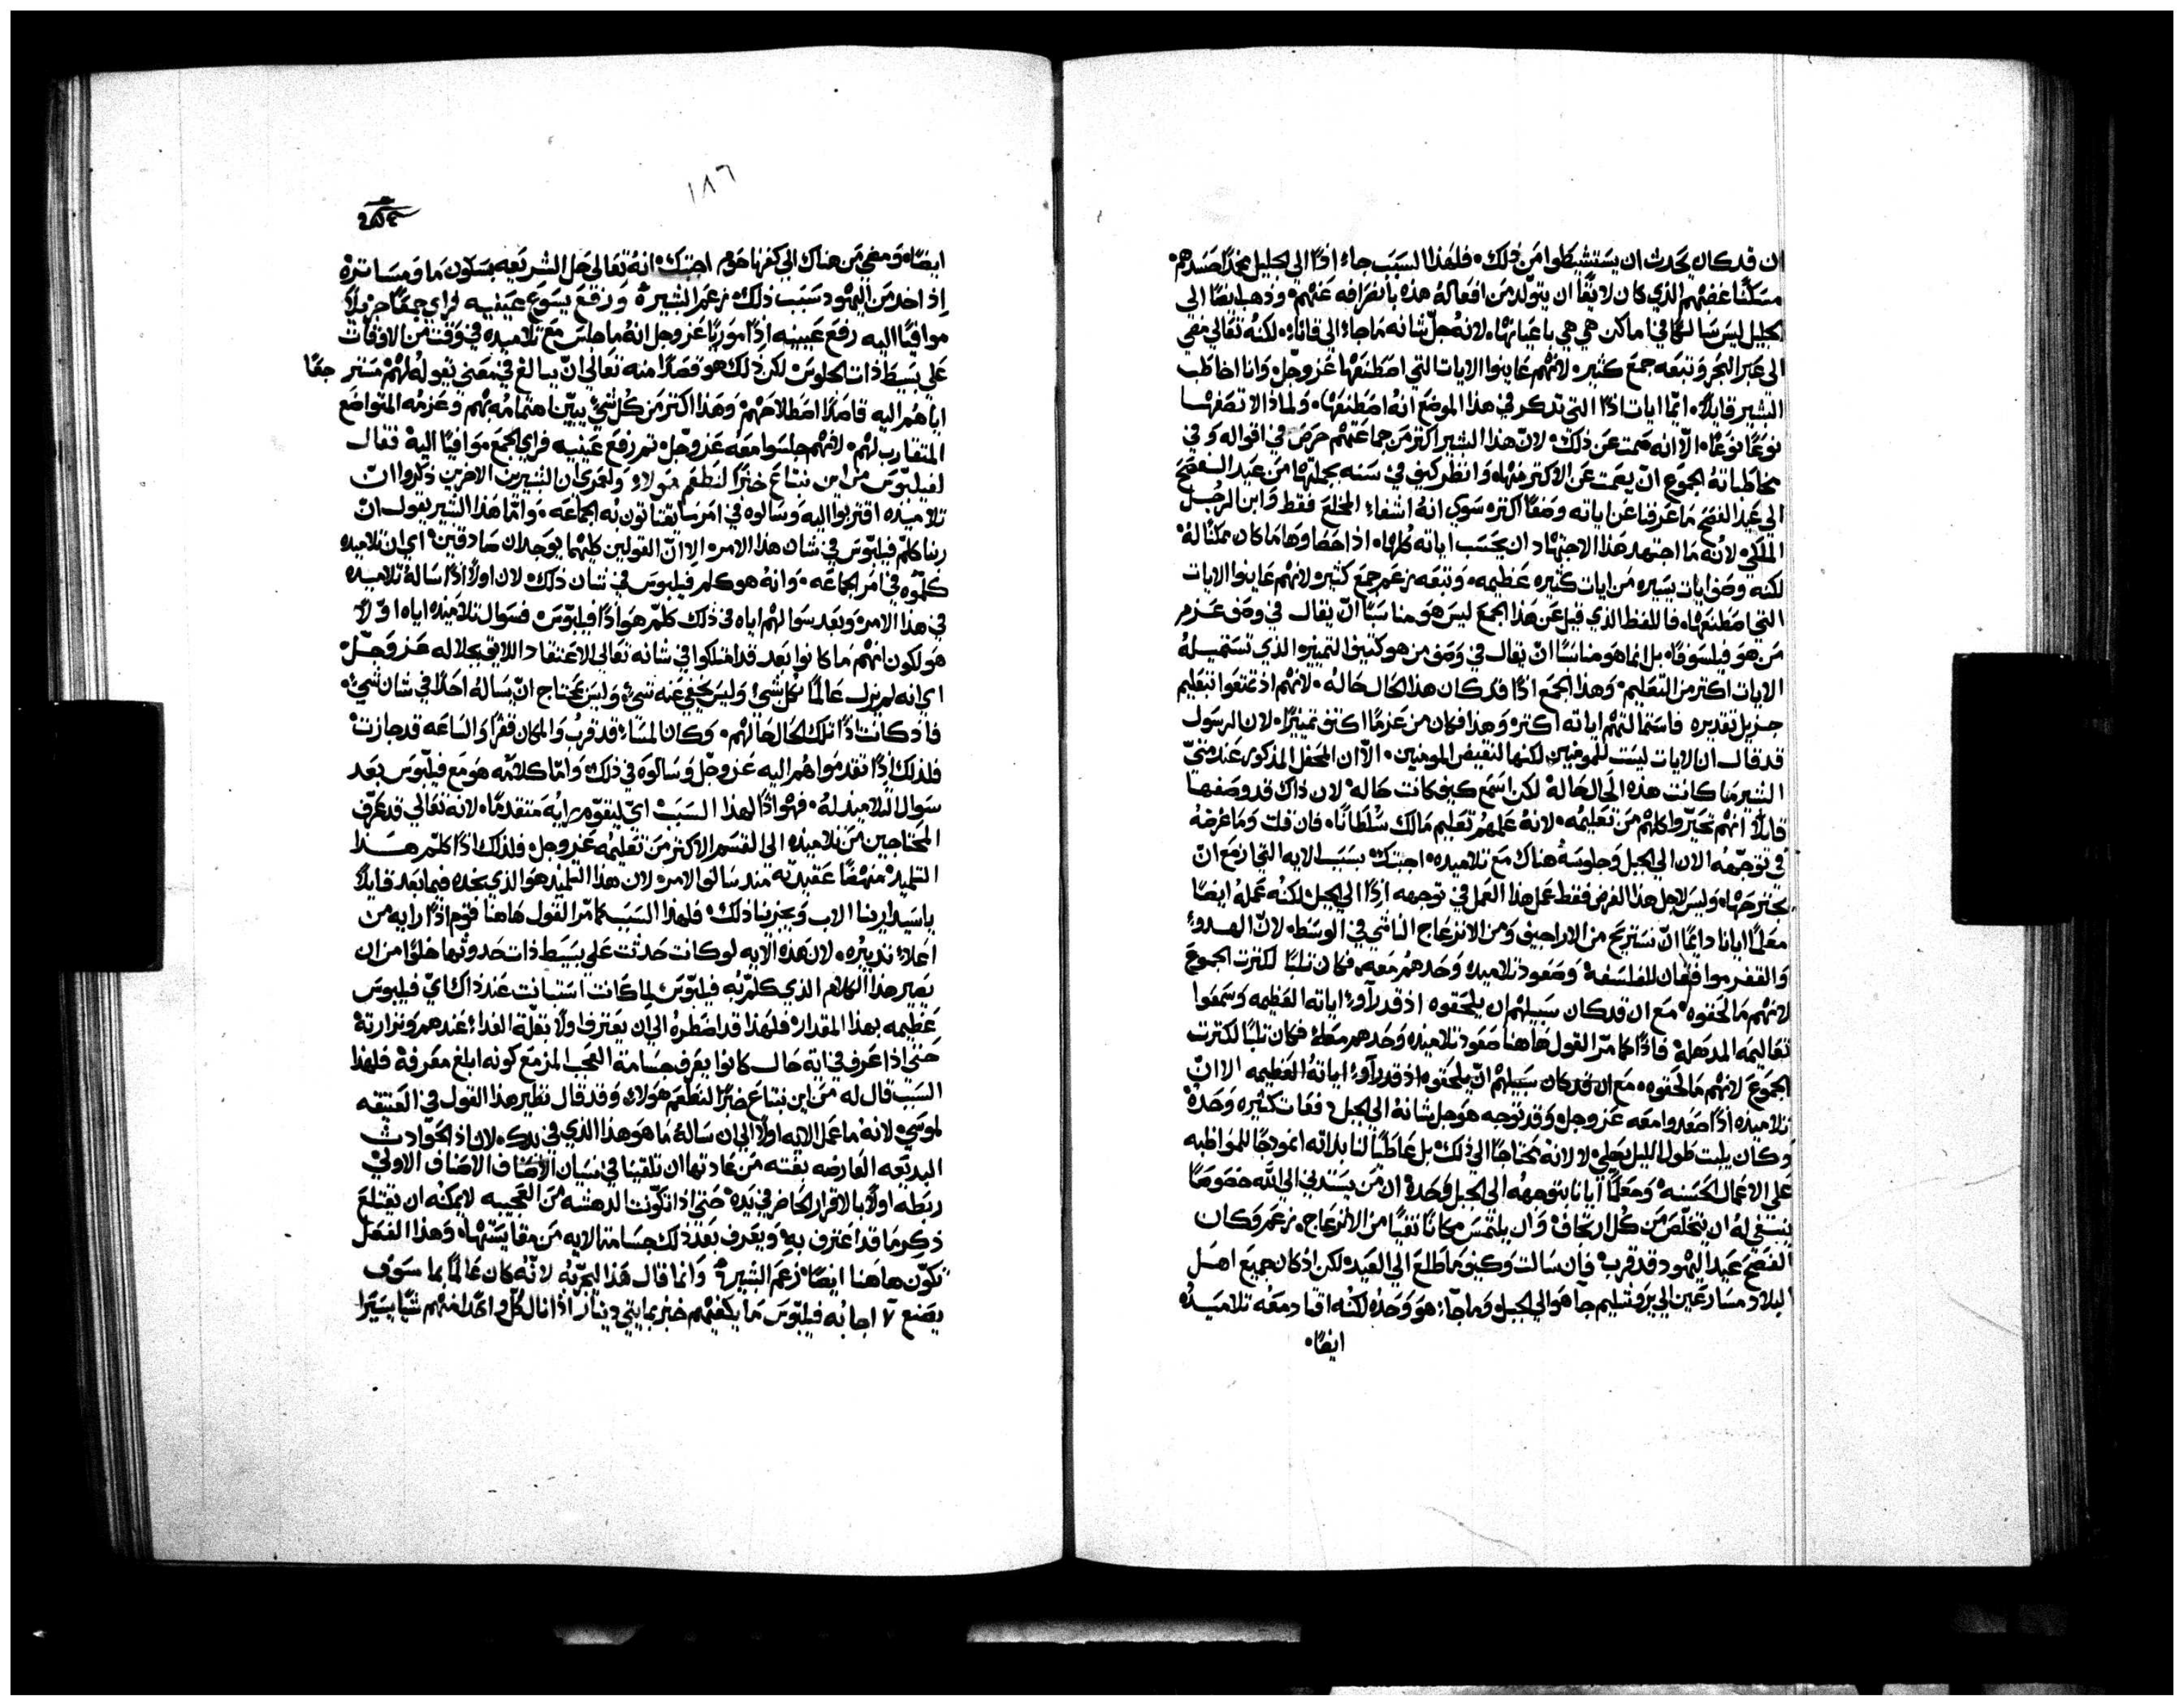 ان قد كان يحدث ان يستشيطوا من ذلك فلهذا السبب جاء اذًا الى الجليل مخمدًا حسدهم
مسكنًا غضبهم الذي كان لايقًا ان يتولد من افعاله هذه بانصرافه عنهم وذهب ايضًا الى
الجليل ليس سالكًا في اماكن هي هي باعيانها لانه جل شانه ما جاء الى قانا لكنه تعالى مضى
الى عبر البحر وتبعه جمع كثير لانهم عاينوا الايات التي اصطنعها عز وجل وانا اخاطب
البشير قايلاً ايما ايات اذًا التي تذكر في هذا الموضع انه اصطنعها ولماذا لا تصفها
نوعًا نوعًا الا انه صمت عن ذلك لان هذا البشير اكثر من جماعتهم حرص في اقواله وفي
مخاطباته الجموع ان يصمت عن الاكثر منها وانظر كيف في سنه بجملتها من عيد الفصح
الى عيد الفصح ما عرفنا عن اياته وصفًا اكثر سوى انه اشفاء المخلع فقط وابن الرجل
الملكي لانه ما اجتهد هذا الاجتهاد ان يحسب اياته كلها اذ احصاوها ما كان ممكنًا له
لكنه وصف ايات يسيره من ايات كثيره عظيمه وتبعه زعم جمع كثير لانهم عاينوا الايات
التي اصطنعها فاللفظ الذي قيل عن هذا الجمع ليس هو مناسبًا ان يقال في وصف عزم
من هو فيلسوفًا بل انما هو مناسبًا ان يقال في وصف من هو كثيف التمييز الذي تستميله
الايات اكثر من التعليم وهذا الجمع اذًا قد كان هذا الحال حاله لانهم اذ تمتعوا بتعليم
جزيل تقديره فاستمالتهم اياته اكثر وهذا فكان من عزمًا اكثف تمييزًا لان الرسول
قد قال ان الايات ليست للمومنين لكنها لنقيض المومنين الا ان المحفل المذكور عند متى
البشير ما كانت هذه الحال حاله لكن اسمع كيف كانت حاله لان ذاك قد وصفها
قايلاً انهم تحيروا كلهم من تعليمه لانه علمهم تعليم مالك سلطانًا فان قلت وما غرضه
في توجهه الان الى الجبل وجلوسه هناك مع تلاميذه اجبتك بسبب الايه التي ازمع ان
يجترحها وليس لاجل هذا الغرض فقط عمل هذا العمل في توجهه اذًا الى الجبل لكنه عمله ايضًا
معلمًا ايانا دايمًا ان نستريح من الاراجيف ومن الانزعاج الناشي في الوسط لان الهدوء
والقفر موافقان للفلسفه وصعود تلاميذه وحدهم معه فكان ثلبًا لكثرت الجموع
لانهم ما لحقوه مع ان قد كان سبيلهم ان يلحقوه اذ قد رآوء اياته العظيمه وسمعوا
تعاليمه المذهله فاذًا كما مر القول هاهنا صعود تلاميذه وحدهم معه فكان ثلبًا لكثرت
الجموع لانهم ما لحقوه مع ان قد كان سبيلهم ان يلحقوه اذ قد رآوء اياته العظيمه الا ان
تلاميذه اذًا صعدوا معه عز وجل وقد توجه هو جل شانه الى الجبل دفعات كثيره وحده
وكان يلبث طول الليل يصلي لا لانه محتاجًا الى ذلك بل عاطيًا لنا بذاته انموذجًا للمواظبه
على الاعمال الحسنه ومعلمًا ايانا بتوجهه الى الجبل وحده ان من يستدني الى الله خصوصًا
ينبغي له ان يتخلص من كل ارتجاف وان يلتمس مكانًا نقيًا من الانزعاج زعم وكان
الفصح عيد اليهود قد قرب فان سالت وكيف ما طلع الى العيد لكن اذ كان جميع اهل
البلاد مسارعين الى يروشليم جآ هو الى الجبل وما جآء هو وحده لكنه اقاد معه تلاميذه
ايضًا
١٨٦
ايضًا ومضي من هناك الى كفرناحوم اجبتك انه تعالى حل الشريعه بسكون ما ومساترة
اذ اخذ من اليهود سبب ذلك زعم البشير ورفع يسوع عينيه فراى جمعًا جزيلاً
موافيًا اليه رفع عينيه اذًا موريًا عز وجل انه ما جلس مع تلاميذه في وقت من الاوقات
على بسيط ذات الجلوس لكن ذلك هو فضلاً منه تعالى ان يبالغ في معنى تقوله لهم مستر جعًا
اياهم اليه قاصدًا اصطلاحهم وهذا اكثر من كل شيء يبين اهتمامه بهم وعزمه المتواضع
المتقارب لهم لانهم جلسوا معه عز وجل ثم رفع عينيه فراى الجمع موافيًا اليه فقال
لفيلبوس من اين نبتاع خبزًا لنطعم هولاء ولعمري ان البشيرين الاخرين ذكروا ان
تلاميذه اقتربوا اليه وسالوه في امر ما يقتاتون به الجماعه واما هذا البشير يقول ان
ربنا كلم فيلبوس في شان هذا الامر الا ان القولين كليهما يوجدان صادقين اي ان تلاميذه
كلموه في امر الجماعه وانه هو كلم فيلبوس في شان ذلك لان اولاً اذًا ساله تلاميذه
في هذا الامر وبعد سوالهم اياه في ذلك كلم هو اذًا فيلبوس فسوال تلاميذه اياه اولاً
هو لكون انهم ما كانوا بعد قد امتلكوا في شانه تعالى الاعتقاد اللايق بجلاله عز وجل
اي انه لم يزل عالمًا بكل شيء وليس يخفي عنه شيء وليس يحتاج ان يساله احدًا في شان شيء
فاذ كانت اذًا تلك الحال حالهم وكان المساء قد قرب والمكان قفرًا والساعه قد جازت
فلذلك اذًا تقدموا هم اليه عز وجل وسالوه في ذلك واما كلامه هو مع فيلبوس بعد
سوال التلاميذ له فهو اذًا لهذا السبب اي ليقوم رايه متقدمًا لانه تعالى قد عرف
المحتاجين من تلاميذه الى القسم الاكثر من تعليمه عز وجل فلذلك اذًا كلم هذا
التلميذ منهضًا عقيدته منذ سالف الامر لان هذا التلميذ هو الذي نجده فيما بعد قايلاً
يا سيد ارينا الاب ويجزينا ذلك فلهذا السبب كما مر القول هاهنا قوم اذًا رايه من
اعلاء تدبيره لان هذه الايه لو كانت حدثت على بسيط ذات حدوثها خلوًا من ان
يصير هذا الكلام الذي كلم به فيلبوس لما كانت استبانت عند ذاك اي فيلبوس
عظيمه بهذا المقدار فلهذا قد اضطره الى ان يعترف اولاً بقلة الغداء عندهم ونزارته
حتى اذا عرف في اية حال كانوا يعرف جسامة العجب المزمع كونه ابلغ معرفة فلهذا
السبب قال له من اين نبتاع خبزًا لنطعم هولاء وقد قال نظير هذا القول في العتيقه
لموسي لانه ما عمل الايه اولاً الى ان ساله ما هو هذا الذي في يدك لان اذ الحوادث
البديعه العارضه بغته من عادتها ان تلقينا في نسيان الاصناف الاولي
ربطه اولاً بالاقرار الحاضر في يده حتى اذا تكونت الدهشه من العجيبه لا يمكنه ان يقتلع
ذكر ما قد اعترف به ويعرف بعد ذلك جسامة الايه من مقايستها وهذا الفصل
تكون هاهنا ايضًا زعم البشير وانما قال هذا ليجربه لانه كان عالمًا بما سوف
يصنع ٧ اجابه فيلبوس ما يكفيهم خبز بمايتي دينار اذا نال كل واحدًا منهم شيًا يسيرًا